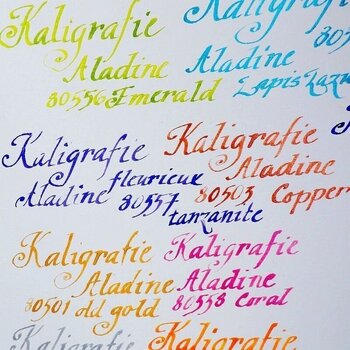 Kaligrafie
Aladine
80556 Emerald
Aladine
Lapis Lazu
Kaligrafie
Aladine fleurieux
80557
tanzanite
Kaligrafie
Aladine
80503 Copper
Kaligrafie
Aladine
80501 old gold
Kaligrafie
Aladine
80558 Coral
Kaligrafie
Kaligrafie